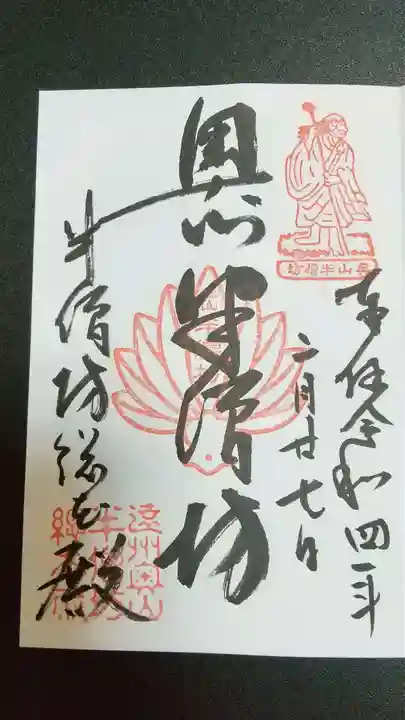 奥山半僧坊
奉拝令和四年
二月廿七日
奥山半僧坊
半僧坊総本殿
遠州奥山
半僧坊